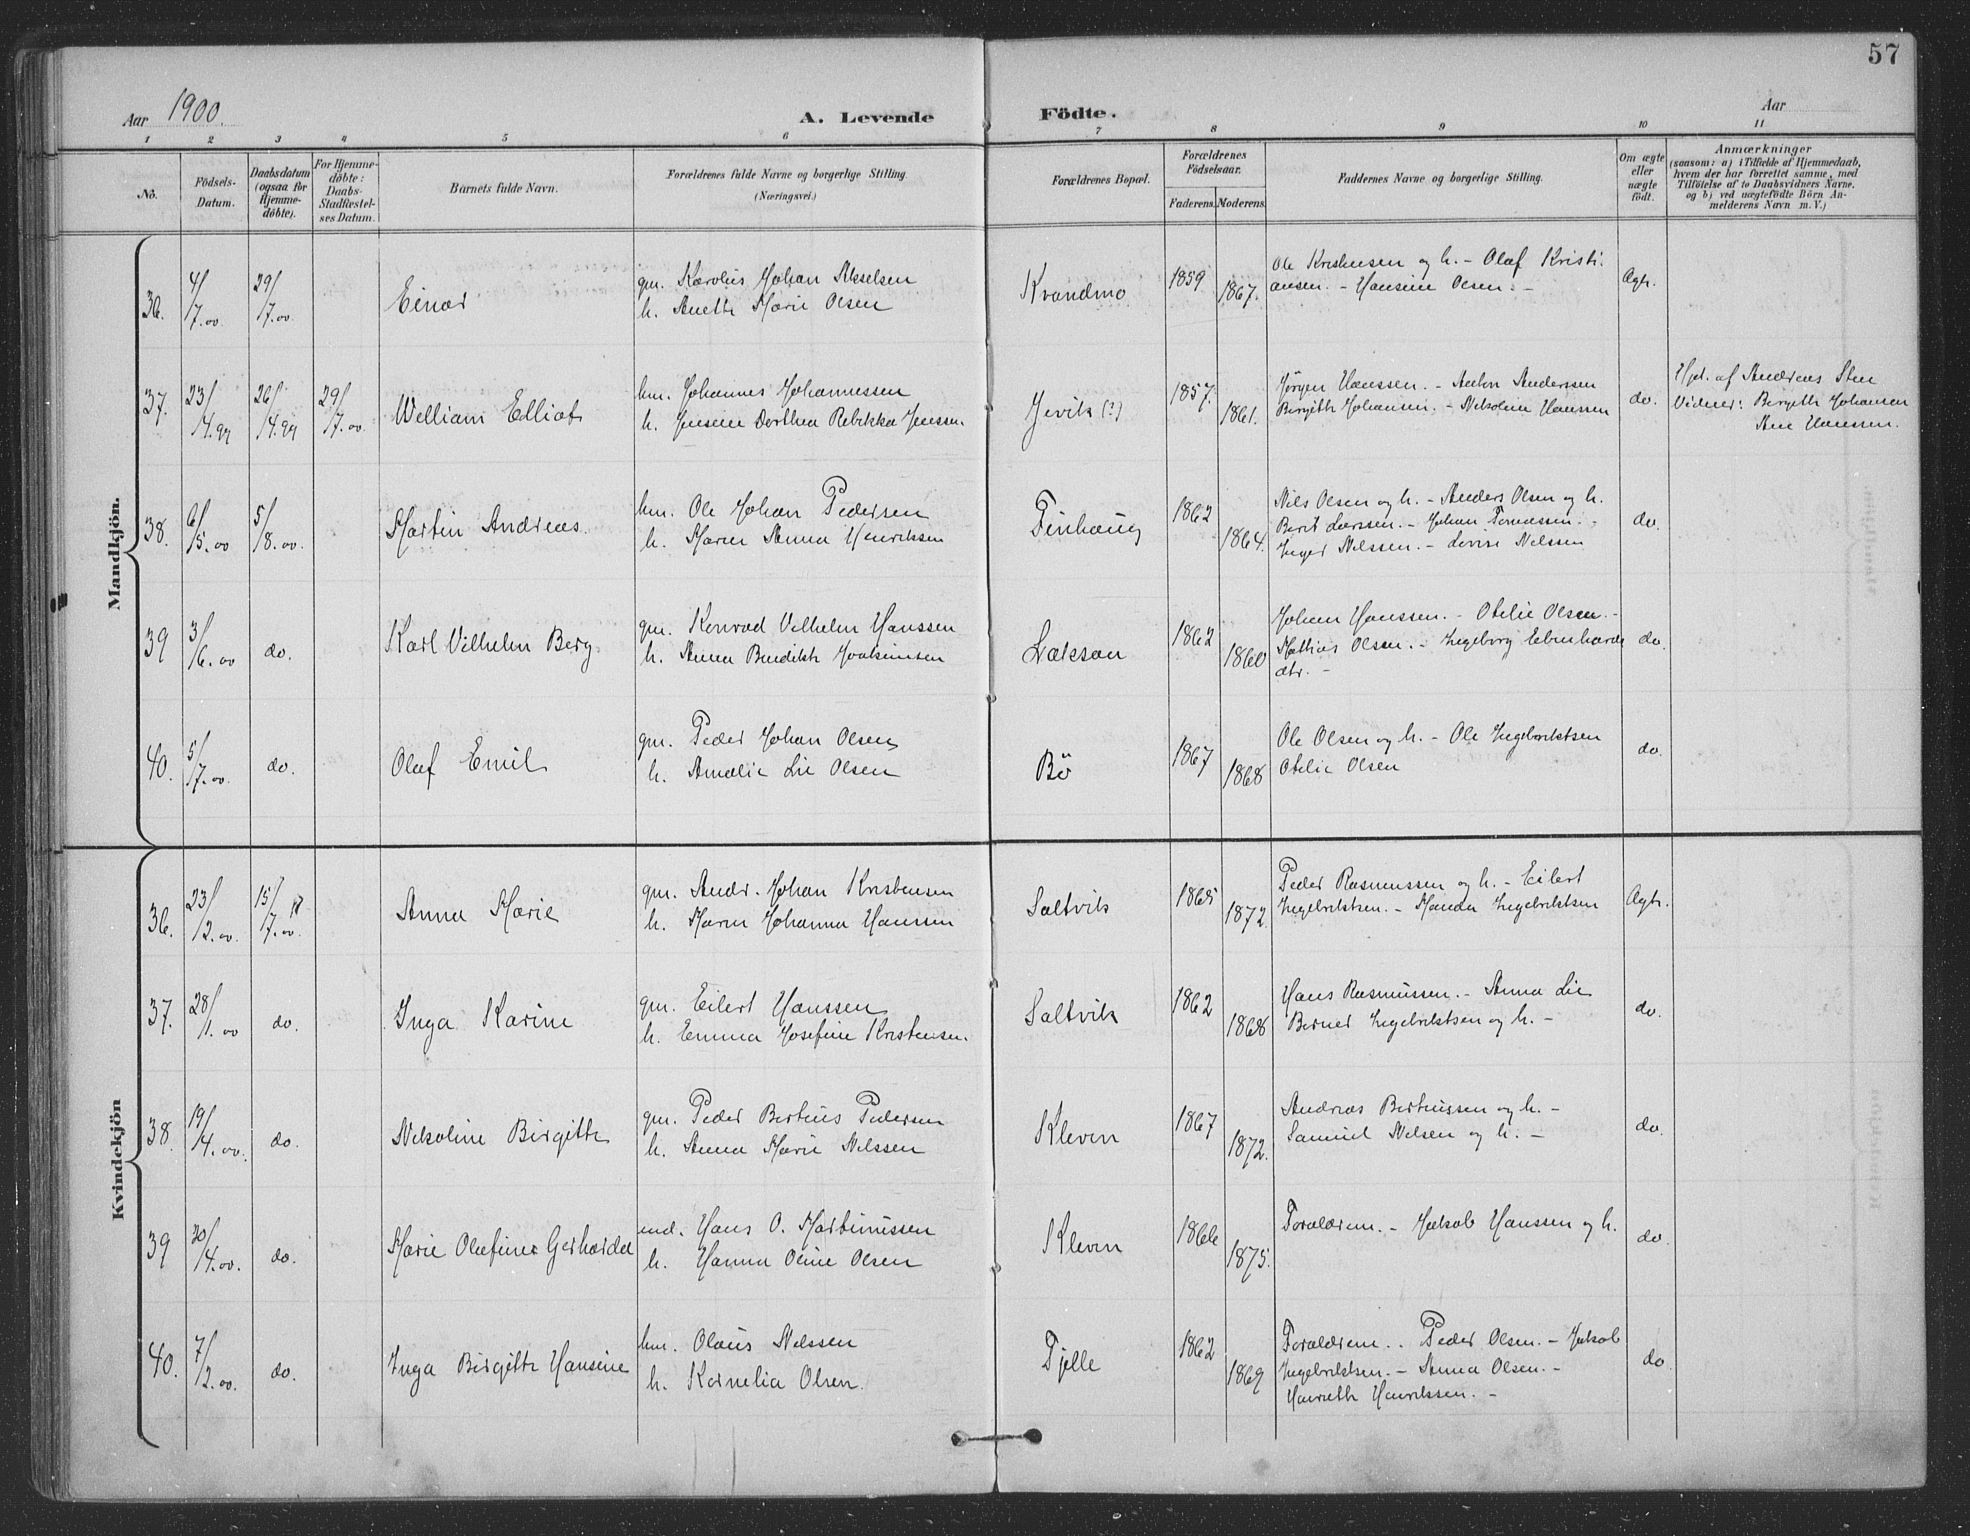 57
Aar 1900. A. Levende Födte. Aar
1 2 3 4 5 6 7 8 9 10 11
No.
Födsels-
Datum.
Daabsdatum
(ogsaa for
Hjemme-
döbte).
For Hjemme-
döbte:
Daabs-
Stadfæstel-
ses Datum.
Barnets fulde Navn.
Forældrenes fulde Navne og borgerlige Stilling.
(Næringsvei.)
Forældrenes Bopæl.
Forældrenes
Födselsaar.
Faderens. Moderens.
Faddernes Navne og borgerlige Stilling.
Om ægte
eller
uægte
födt.
Anmærkninger
(saasom: a) i Tilfælde af Hjemmedaab,
hvem der har forrettet samme, med
Tilföielse af to Daabsvidners Navne,
og b) ved uægtefödte Börn An-
melderens Navn m. V.)
Mandkjön.
36. 4/7.00. 29/7.00. Einar
gm. Karolus Johan Akselsen
h. Anette Marie Olsen
Kvandmo 1859 1867.
Ole Kristensen og h. - Olaf Kristi-
ansen. - Hansine Olsen. -
Ægte.
37. 23/14.99 26/14.99 29/7.00. William Elliot
hm. Johannes Johannessen
h. Jensine Dorthea Rebekka Jenssen.
Jevik (?) 1857. 1861.
Jörgen Hanssen. - Anton Anderssen
Birgitte Johansen. - Nikoline Hanssen
do.
Hjd. af Andreas Sten
Vidner: Birgitte Johansen
Ane Hanssen.
38. 6/5.00 5/8.00. Martin Andreas.
hm. Ole Johan Pedersen
h. Maren Anna Henriksen
Finhaug 1862 1864.
Nils Olsen og h. - Anders Olsen og h.
Berit Larssen. - Johan Tomassen. -
Inger Nilssen. - Lovise Nilssen
do.
39 3/6.00 do. Karl Vilhelm Berg.
gm. Konrad Vilhelm Hanssen
h. Anna Bendikte Joakimsen
Laksaa 1862 1860
Johan Hanssen. - Otelie Olsen. -
Mathias Olsen. - Ingeborg Ebenhards
dtr. -
do.
40. 5/7.00. do. Olaf Emil
gm. Peder Johan Olsen
h. Amalie Lie Olsen
Bö 1867 1868
Ole Olsen og h. - Ole Ingebriktsen
Otelie Olsen
do.
Kvindekjön
36. 23/2.00. 15/7.00. Anna Marie
gm. Andr. Johan Kristensen
h. Maren Johanna Hansen
Saltvik 1865 1872.
Peder Rasmussen og h. - Eilert
Ingebriktsen. - Manda Ingebriktsen
Ægte.
37. 28/1.00 do. Inga Karine
gm. Eilert Hanssen
h. Emma Josefine Kristensen.
Saltvik 1862 1868
Hans Rasmussen. - Anna Lie
Berner Ingebriktsen og h. -
do.
38. 19/4.00. do. Nikoline Birgitte
gm. Peder Berteus Pedersen
h. Anna Marie Nilssen
Kleven 1867 1872.
Andreas Berteussen og h. -
Samuel Nilsen og h. -
do.
39 20/4.00. do. Marie Olufine Gerharda
ind. Hans O. Martinussen
h. Hanna Oline Olsen
Kleven 1866 1875.
Forældrene. - Jakob Hanssen og h.
do.
40. 7/2.00. do. Inga Birgitte Hansine
hm. Olaus Nilssen
h. Kornelia Olsen.
Fjelle 1862 1869
Forældrene.. Peder Olsen. - Jakob
Ingebriktsen. - Anna Olsen. -
Henriette Henrikssen. -
do.